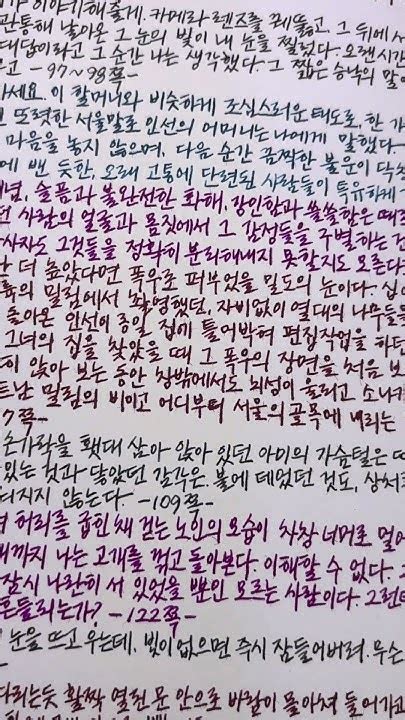 이야기해줄게. 카메라 렌즈를 꿰뚫고, 그 뒤에 서
관통해 날아온 그 눈의 빛이 내 눈을 찔렀다. 오랜 시간
대답이라고 그 순간 나는 생각했다. 그 짧은 승낙의 말이
고 -97~98쪽-
하세요. 이 할머니와 비슷하게 조심스러운 태도로, 한 가
또렷한 서울말로 인선의 어머니는 나에게 말했다
마음을 놓지 않으며, 다음 순간 끔찍한 불운이 닥쳐
에 밴 듯한, 오래 고통에 단련된 사람들이 특유하게
념, 슬픔과 불완전한 화해, 강인함과 쓸쓸함은 때로
사람의 얼굴과 몸짓에서 그 감정들을 구별하는 건
사자도 그것들을 정확히 분리해내지 못할지도 모른다
더 높았다면 폭우로 퍼부었을 밀도의 눈이다. 십
밀림에서 촬영했던, 자비없이 열대의 나무들을
돌아온 인선이 종일 집에 틀어박혀 편집작업을 하던
그녀의 집을 찾았을 때 그 폭우의 장면을 처음 보
히 앉아 보는 동안 창밖에서도 뇌성이 울리고 소나기
트남 밀림의 비이고 어디부터 서울의 골목에 내리는
7쪽-
손가락을 횃대 삼아 앉아 있던 아미의 가슴털은 따
있는 것과 닿았던 감각은. 불에 데었던 것도, 상처
워지지 않는다. -109쪽-
허리를 굽힌 채 걷는 노인의 모습이 차창 너머로 멀어
때까지 나는 고개를 꺾고 돌아본다. 이해할 수 없다.
잠시 나란히 서 있었을 뿐인 모르는 사람이다. 그런데
흔들리는가? -122쪽-
눈을 뜨고 우는데, 빛이 없으면 즉시 잠들어버려. 무슨
다리는듯 활짝 열린 문 안으로 바람이 몰아쳐 들어가고